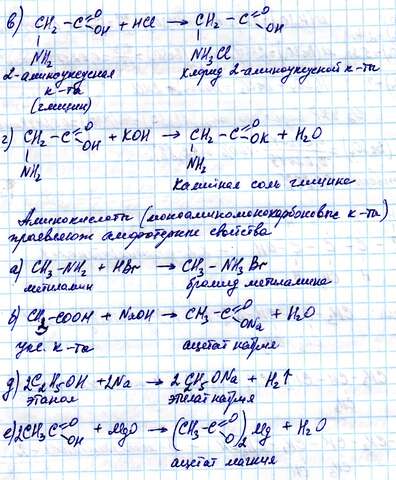 в) CH₂ - C(=O)OH + HCl → CH₂ - C(=O)OH
NH₂ NH₃Cl
2-аминоуксусная хлорид 2-аминоуксусной к-ты
к-та
(глицин)
г) CH₂ - C(=O)OH + KOH → CH₂ - C(=O)OK + H₂O
NH₂ NH₂
Калийная соль глицина
Аминокислоты (моноаминомонокарбоновые к-ты)
проявляют амфотерные свойства
а) CH₃-NH₂ + HBr → CH₃-NH₃Br
метиламин бромид метиламина
б) CH₃-COOH + NaOH → CH₃-C(=O)ONa + H₂O
укс. к-та ацетат натрия
д) 2C₂H₅OH + 2Na → 2C₂H₅ONa + H₂↑
этанол этилат натрия
е) 2CH₃C(=O)OH + MgO → (CH₃-C(=O)O)₂Mg + H₂O
ацетат магния